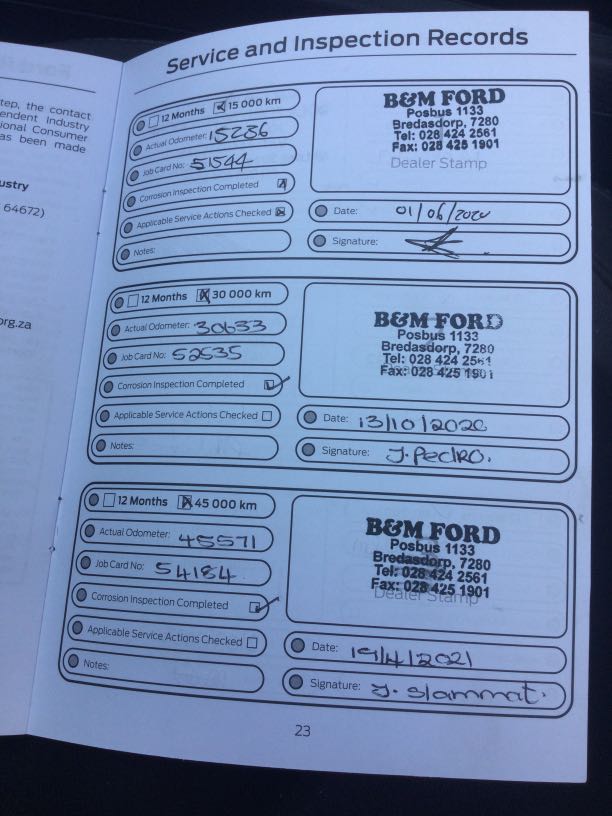 tep, the contact
endent Industry
ional Consumer
as been made
ustry
64672)
org.za
Service and Inspection Records
12 Months 15 000 km
Actual Odometer: 15286
Job Card No: 51544
Corrosion Inspection Completed
Applicable Service Actions Checked
Notes:
B&M FORD
Posbus 1133
Bredasdorp, 7280
Tel: 028 424 2561
Fax: 028 425 1901
Dealer Stamp
Date: 01/06/2020
Signature:
12 Months 30 000 km
Actual Odometer: 30633
Job Card No: 52535
Corrosion Inspection Completed
Applicable Service Actions Checked
Notes:
B&M FORD
Posbus 1133
Bredasdorp, 7280
Tel: 028 424 2561
Fax: 028 425 1901
Date: 13/10/2020
Signature: J. Pedro.
12 Months 45 000 km
Actual Odometer: 45571
Job Card No: 54184
Corrosion Inspection Completed
Applicable Service Actions Checked
Notes:
B&M FORD
Posbus 1133
Bredasdorp, 7280
Tel: 028 424 2561
Fax: 028 425 1901
Dealer Stamp
Date: 19/4/2021
Signature: J. Slammat.
23